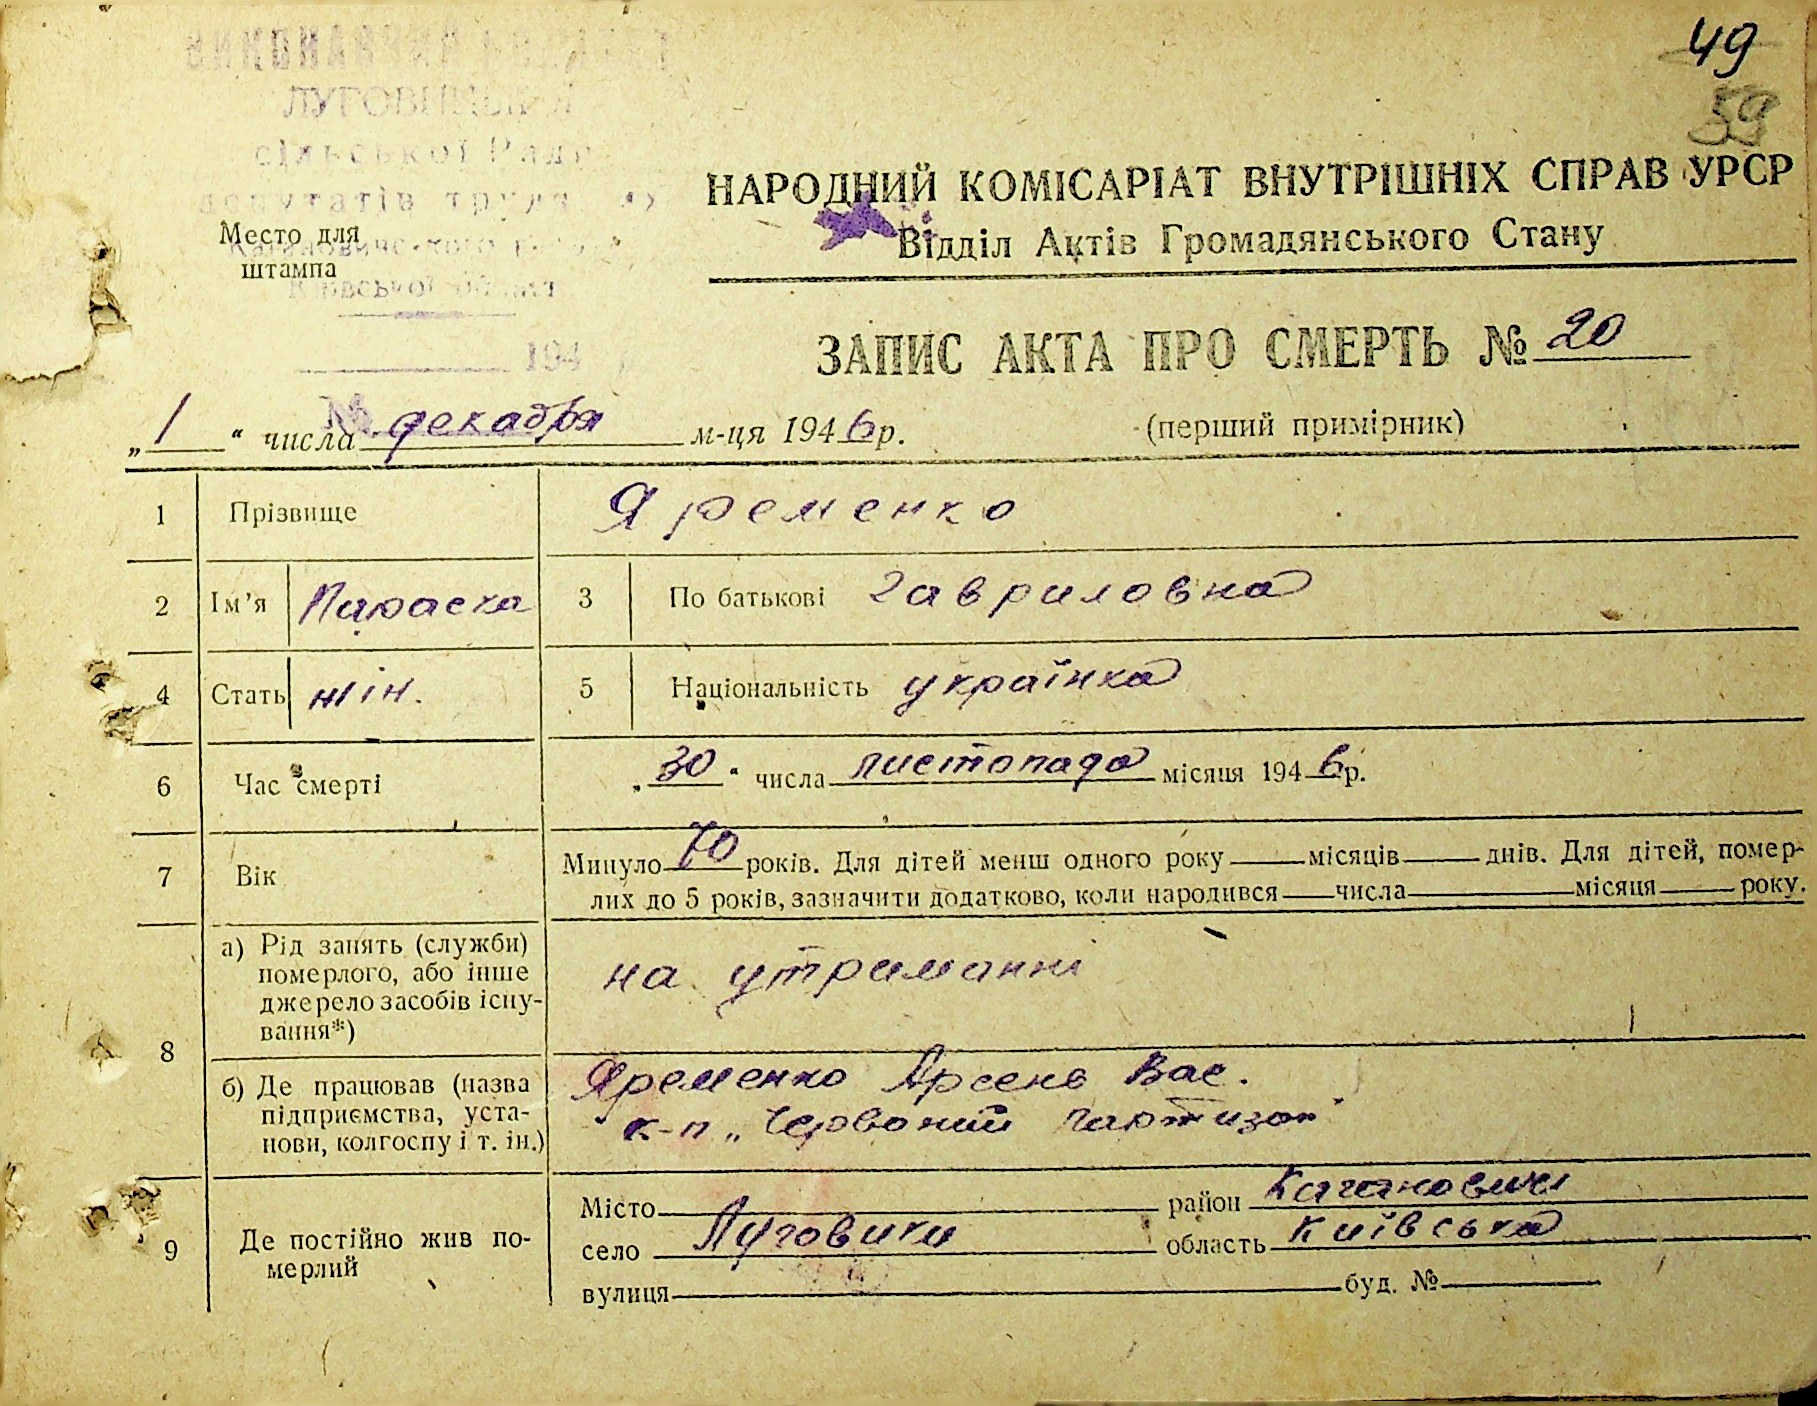 49
59
ЛУГОВИЦЬКОЇ
сільської Ради
депутатів
Київської області
194
НАРОДНИЙ КОМІСАРІАТ ВНУТРІШНІХ СПРАВ УРСР
Відділ Актів Громадянського Стану
Место для
штампа
ЗАПИС АКТА ПРО СМЕРТЬ № 20
„ 1 “ числа декабря м-ця 1946 р. (перший примірник)
1 Прізвище Яременко
2 Ім'я Параска 3 По батькові Гавриловна
4 Стать жін. 5 Національність українка
6 Час смерті „30“ числа листопада місяця 1946 р.
7 Вік Минуло 70 років. Для дітей менш одного року — місяців — днів. Для дітей, помер-
лих до 5 років, зазначити додатково, коли народився — числа — місяця — року.
8 а) Рід занять (служби)
померлого, або інше
джерело засобів існу-
вання*)
на утриманні
б) Де працював (назва
підприємства, уста-
нови, колгоспу і т. ін.)
Яременко Арсень Вас.
к-п „Червоний партизан“
9 Де постійно жив по-
мерлий
Місто — район Кагановичі
село Луговики область Київська
вулиця — буд. № —